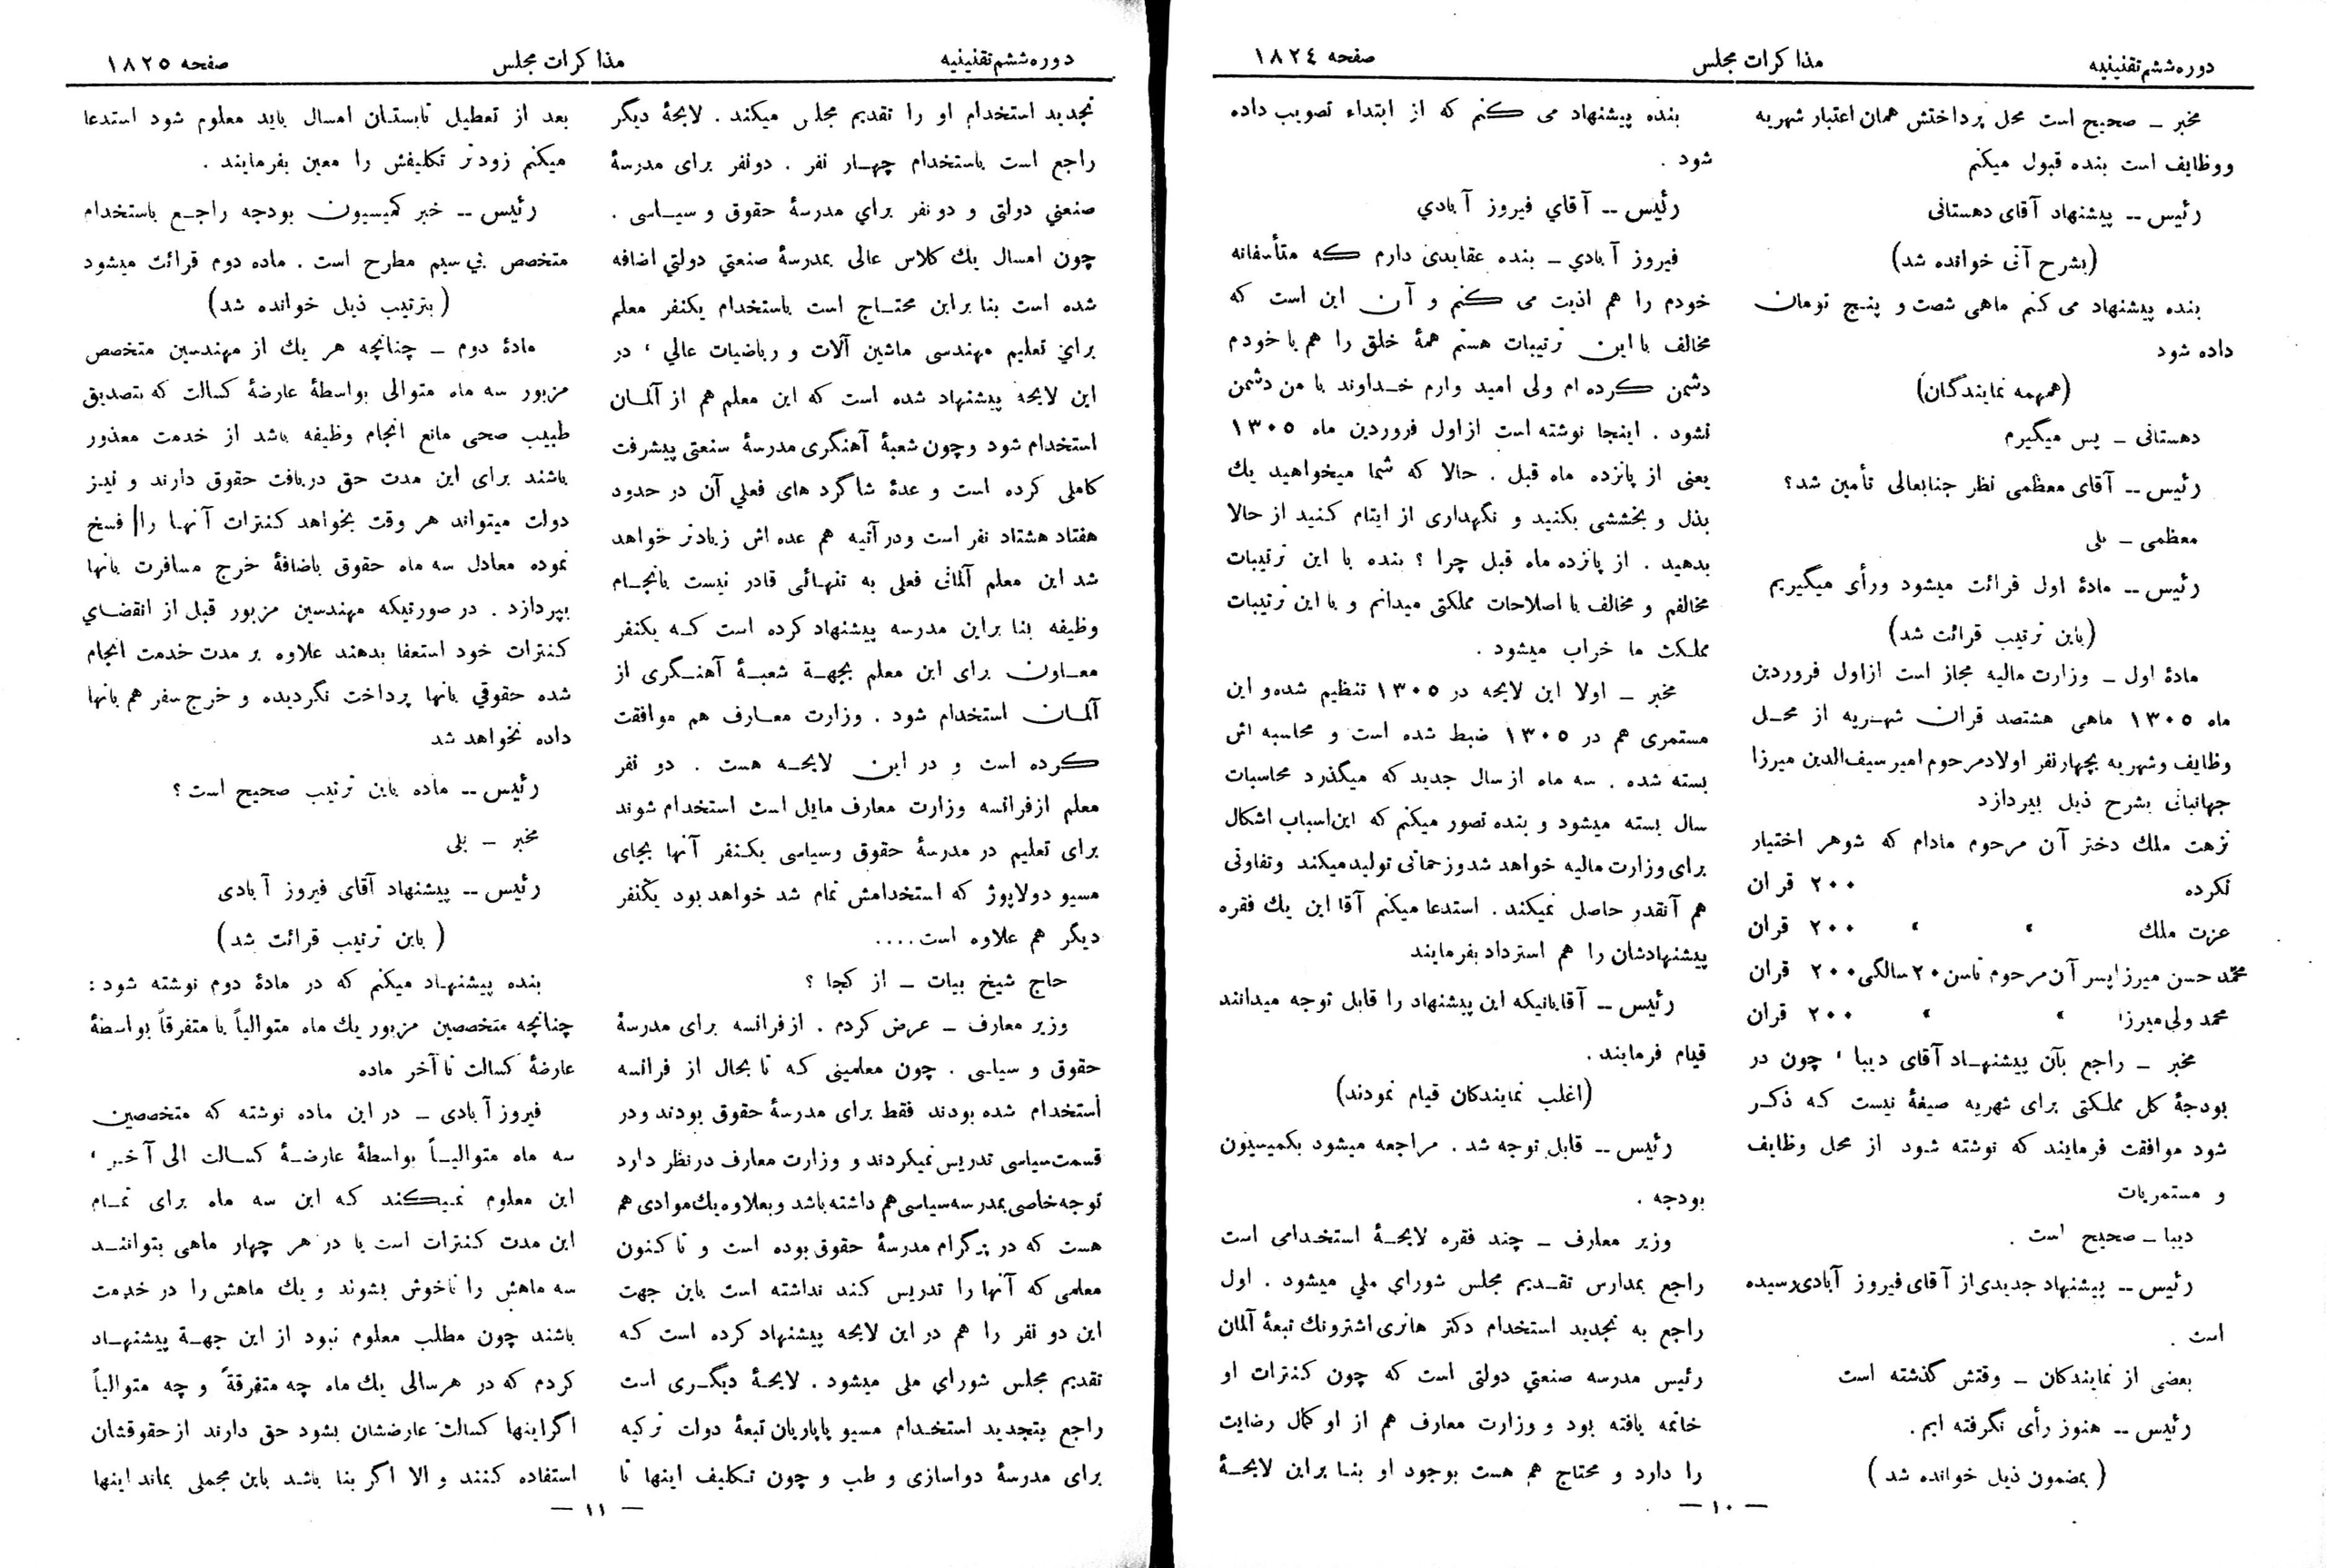 دوره ششم تقنینیه
مذاکرات مجلس
صفحه ١٨٢٤
مخبر ـ صحیح است محل پرداختش همان اعتبار شهریه
ووظایف است بنده قبول میکنم
رئیس ـ پیشنهاد آقای دهستانی
(بشرح آتی خوانده شد)
بنده پیشنهاد می کنم ماهی شصت و پنج تومان
داده شود
(همهمه نمایندگان)
دهستانی ـ پس میگیرم
رئیس ـ آقای معظمی نظر جنابعالی تأمین شد؟
معظمی ـ بلی
رئیس ـ مادۀ اول قرائت میشود ورأی میگیریم
(باین ترتیب قرائت شد)
مادۀ اول ـ وزارت مالیه مجاز است ازاول فروردین
ماه ١٣٠٥ ماهی هشتصد قران شهریه از محل
وظایف وشهریه بچهارنفر اولادمرحوم امیرسیف‌الدین میرزا
جهانبانی بشرح ذیل بپردازد
نزهت ملك دختر آن مرحوم مادام که شوهر اختیار
نکرده ٢٠٠ قران
عزت ملك ، ، ٢٠٠ قران
محمد حسن میرزا پسر آن مرحوم تاسن ٢٠ سالگی ٢٠٠ قران
محمد ولی میرزا ، ، ٢٠٠ قران
مخبر ـ راجع بآن پیشنهاد آقای دیبا ، چون در
بودجۀ کل مملکتی برای شهریه صیغۀ نیست که ذکر
شود موافقت فرمایند که نوشته شود از محل وظایف
و مستمریات
دیبا ـ صحیح است .
رئیس ـ پیشنهاد جدیدی از آقای فیروز آبادی رسیده
است .
بعضی از نمایندکان ـ وقتش گذشته است
رئیس ـ هنوز رأی نگرفته ایم .
( بمضمون ذیل خوانده شد )
بنده پیشنهاد می کنم که از ابتداء تصویب داده
شود .
رئیس ـ آقاي فیروز آبادي
فیروز آبادي ـ بنده عقایدی دارم که متأسفانه
خودم را هم اذیت می کنم و آن این است که
مخالف با این ترتیبات هستم همۀ خلق را هم با خودم
دشمن کرده ام ولی امید وارم خداوند با من دشمن
نشود . اینجا نوشته است ازاول فروردین ماه ١٣٠٥
یعنی از پانزده ماه قبل . حالا که شما میخواهید یك
بذل و بخششی بکنید و نگهداری از ایتام کنید از حالا
بدهید . از پانزده ماه قبل چرا ؟ بنده با این ترتیبات
مخالفم و مخالف با اصلاحات مملکتی میدانم و با این ترتیبات
مملکت ما خراب میشود .
مخبر ـ اولا این لایحه در ١٣٠٥ تنظیم شده و این
مستمری هم در ١٣٠٥ ضبط شده است و محاسبه اش
بسته شده . سه ماه از سال جدید که میگذرد محاسبات
سال بسته میشود و بنده تصور میکنم که این‌اسباب اشکال
برای وزارت مالیه خواهد شدوزحماتی تولیدمیکند وتفاوتی
هم آنقدر حاصل نمیکند . استدعا میکنم آقا این یك فقره
پیشنهادشان را هم استرداد بفرمایند
رئیس ـ آقایانیکه این پیشنهاد را قابل توجه میدانند
قیام فرمایند .
(اغلب نمایندکان قیام نمودند)
رئیس ـ قابل توجه شد . مراجعه میشود بکمیسیون
بودجه .
وزیر معارف ـ چند فقره لایحۀ استخدامی است
راجع بمدارس تقدیم مجلس شورای ملي میشود . اول
راجع به تجدید استخدام دکتر هانری اشترونك تبعۀ آلمان
رئیس مدرسه صنعتي دولتی است که چون کنترات او
خاتمه یافته بود و وزارت معارف هم از او کمال رضایت
را دارد و محتاج هم هست بوجود او بنا براین لایحۀ
ـ ١٠ ـ
دوره ششم تقنینیه
مذاکرات مجلس
صفحه ١٨٢٥
تجدید استخدام او را تقدیم مجلس میکند . لایحۀ دیگر
راجع است باستخدام چهار نفر . دونفر برای مدرسۀ
صنعتي دولتی و دونفر براي مدرسۀ حقوق و سیاسی .
چون امسال یك کلاس عالی بمدرسۀ صنعتي دولتي اضافه
شده است بنا براین محتاج است باستخدام یکنفر معلم
براي تعلیم مهندسی ماشین آلات و ریاضیات عالي ، در
این لایحه پیشنهاد شده است که این معلم هم از آلمان
استخدام شود و چون شعبۀ آهنگری مدرسۀ صنعتی پیشرفت
کاملی کرده است و عدۀ شاگرد های فعلي آن در حدود
هفتاد هشتاد نفر است ودر آتیه هم عده اش زیادتر خواهد
شد این معلم آلمانی فعلی به تنهائی قادر نیست بانجام
وظیفه بنا براین مدرسه پیشنهاد کرده است که یکنفر
معاون برای این معلم بجهة شعبۀ آهنگری از
آلمان استخدام شود . وزارت معارف هم موافقت
کرده است و در این لایحه هست . دو نفر
معلم ازفرانسه وزارت معارف مایل است استخدام شوند
برای تعلیم در مدرسۀ حقوق وسیاسی یکنفر آنها بجای
مسیو دولاپوژ که استخدامش تمام شد خواهد بود یکنفر
دیگر هم علاوه است....
حاج شیخ بیات ـ از کجا ؟
وزیر معارف ـ عرض کردم . ازفرانسه برای مدرسۀ
حقوق و سیاسی . چون معلمینی که تا بحال از فرانسه
استخدام شده بودند فقط برای مدرسۀ حقوق بودند ودر
قسمت‌سیاسی تدریس نمیکردند و وزارت معارف درنظر دارد
توجه خاصی بمدرسه‌سیاسی هم داشته باشد وبعلاوه یك موادی هم
هست که در پرگرام مدرسۀ حقوق بوده است و تا کنون
معلمی که آنها را تدریس کند نداشته است باین جهت
این دو نفر را هم در این لایحه پیشنهاد کرده است که
تقدیم مجلس شورای ملی میشود . لایحۀ دیگری است
راجع بتجدید استخدام مسیو پاپاریان تبعۀ دولت ترکیه
برای مدرسۀ دواسازی و طب و چون تکلیف اینها تا
بعد از تعطیل تابستان امسال باید معلوم شود استدعا
میکنم زودتر تکلیفش را معین بفرمایند .
رئیس ـ خبر کمیسیون بودجه راجع باستخدام
متخصص بی سیم مطرح است . ماده دوم قرائت میشود
(بترتیب ذیل خوانده شد)
مادۀ دوم ـ چنانچه هر یك از مهندسین متخصص
مزبور سه ماه متوالی بواسطۀ عارضۀ کسالت که بتصدیق
طبیب صحی مانع انجام وظیفه باشد از خدمت معذور
باشند برای این مدت حق دریافت حقوق دارند و نیز
دولت میتواند هر وقت بخواهد کنترات آنها را فسخ
نموده معادل سه ماه حقوق باضافۀ خرج مسافرت بانها
بپردازد . در صورتیکه مهندسین مزبور قبل از انقضاي
کنترات خود استعفا بدهند علاوه بر مدت خدمت انجام
شده حقوقي بانها پرداخت نگردیده و خرج سفر هم بانها
داده نخواهد شد
رئیس ـ ماده باین ترتیب صحیح است ؟
مخبر ـ بلی
رئیس ـ پیشنهاد آقای فیروز آبادی
( باین ترتیب قرائت شد)
بنده پیشنهاد میکنم که در مادۀ دوم نوشته شود :
چنانچه متخصصین مزبور یك ماه متوالیاً یا متفرقاً بواسطۀ
عارضۀ کسالت تا آخر ماده
فیروز آبادی ـ در این ماده نوشته که متخصصین
سه ماه متوالیاً بواسطۀ عارضۀ کسالت الی آخر ،
این معلوم نمیکند که این سه ماه برای تمام
این مدت کنترات است یا در هر چهار ماهی بتوانند
سه ماهش را ناخوش بشوند و یك ماهش را در خدمت
باشند چون مطلب معلوم نبود از این جهة پیشنهاد
کردم که در هرسالی یك ماه چه متفرقةً و چه متوالیاً
اگراینها کسالت عارضشان بشود حق دارند از حقوقشان
استفاده کنند و الا اگر بنا باشد باین مجملی بماند اینها
ـ ١١ ـ